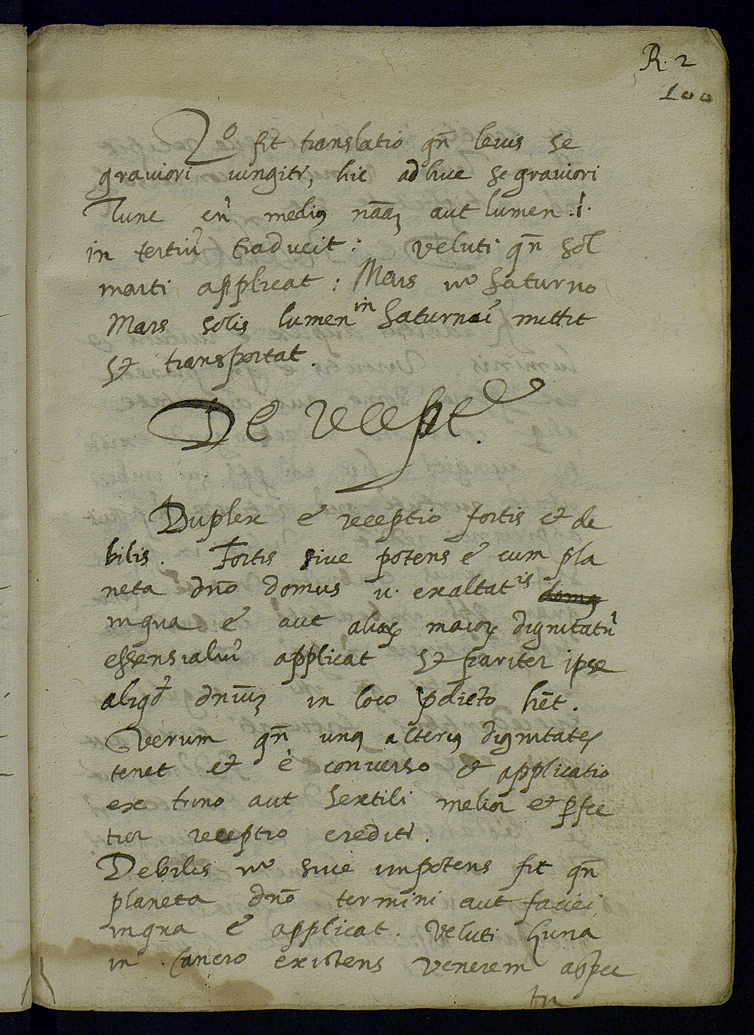 R. 2
100
2º fit translatio qñ levis se
graviori iungitr, hic adhuc se graviori
Tunc eñ medius nãaz aut lumen .i.
in tertiũ traducit : veluti qñ sol
marti applicat : Mars vº saturno
Mars solis lumen in saturnũ mittit
et transportat.
De recept.
Duplex ẽ receptio fortis et de
bilis. Fortis sive potens ẽ cum pla
neta dnõ domus v. exaltatis
inqua ẽ aut aliax maiox dignitatũ
essensialiũ applicat et pariter ipse
aliqd dniũz in loco pdicto hẽt.
Verum qñ unus alterius dignitates
tenet et è converso et applicatio
ex trino aut sextili melior et pfec
tior receptio creditr.
Debilis vº sive impotens fit qñ
planeta dnõ termini aut faciei
inqua ẽ applicat. Veluti Luna
in Cancro existens venerem aspec
tu